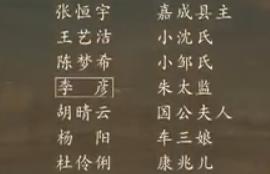 张恒宇 嘉成县主
王艺洁 小沈氏
陈梦希 小邹氏
李彦 朱太监
胡晴云 国公夫人
杨阳 车三娘
杜伶俐 康兆儿